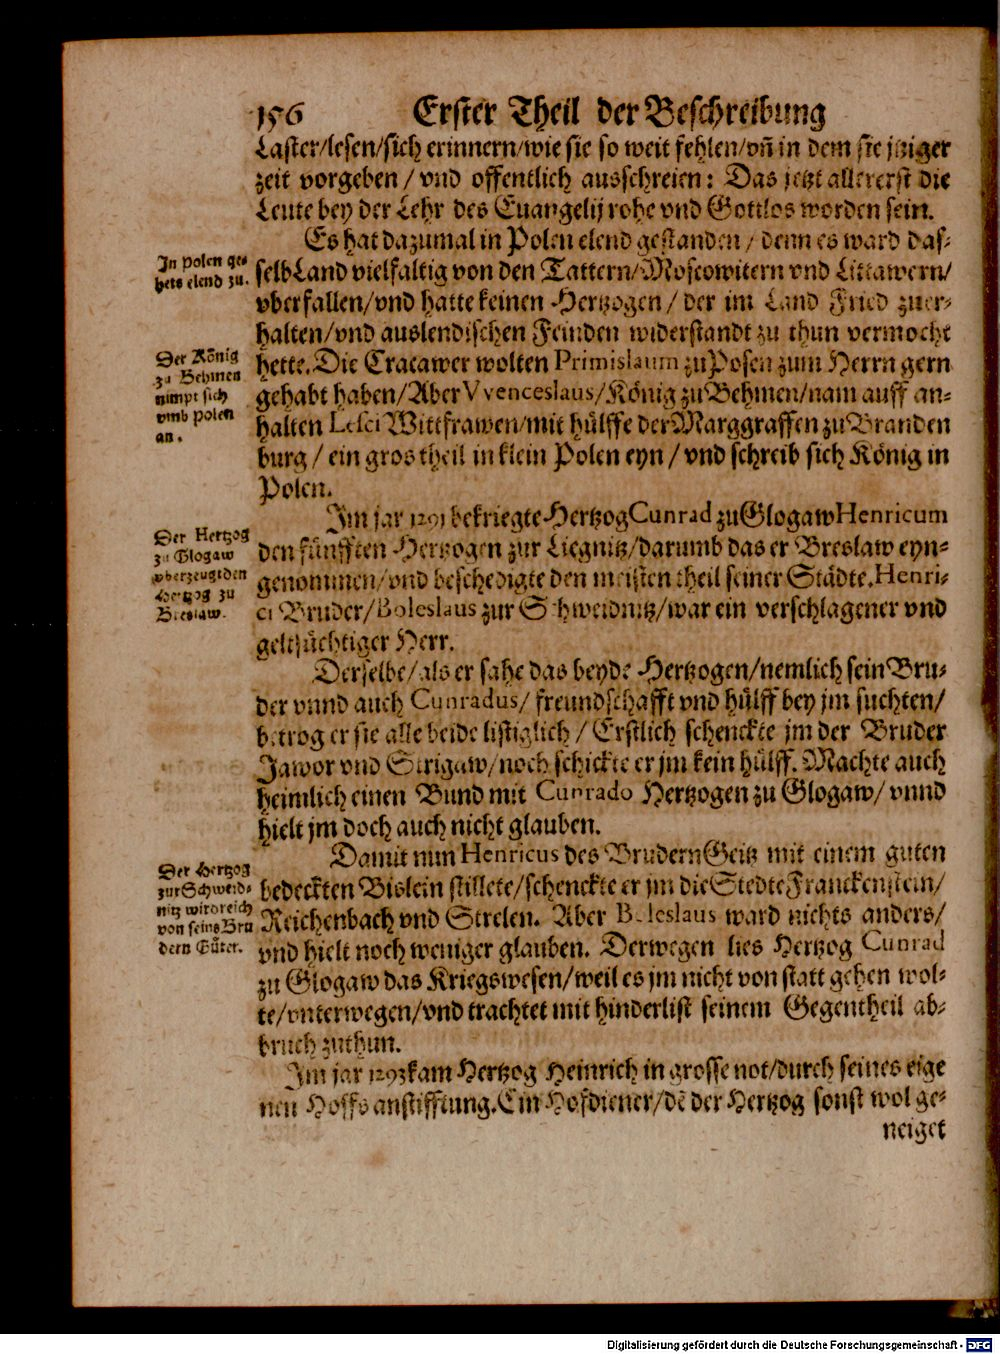 156 Erster Theil der Beschreibung
Laster/lesen/sich erinnern/wie sie so weit fehlen/vn̄ in dem sie jtziger
zeit vorgeben / vnd offentlich ausschreien: Das jetzt allererst die
Leute bey der Lehr des Euangelij rohe vnd Gottlos worden sein.
Es hat dazumal in Polen elend gestanden / denn es ward das-
In Polen ge-
hets elend zu.
selb Land vielfaltig von den Tattern/Moscowitern vnd Littawern/
vberfallen/vnd hatte keinen Hertzogen / der im Land Fried zuer-
halten/vnd auslendischen Feinden widerstandt zu thun vermocht
Der König
zu Behmen
nimpt sich
vmb Polen
an.
hette. Die Cracawer wolten Primislaum zu Posen zum Herrn gern
gehabt haben/Aber VVenceslaus/König zu Behmen/nam auff an-
halten Lesci Wittfrawen/mit hülffe der Marggraffen zu Branden
burg / ein gros theil in klein Polen eyn / vnd schreib sich König in
Polen.
Im jar 1291 bekriegte Hertzog Cunrad zu Glogaw Henricum
Der Hertzog
zu Glogaw
vberzeugt den
Hertzog zu
Breslaw.
den fünfften Hertzogen zur Liegnitz/darumb das er Breslaw eyn-
genommen/vnd beschedigte den meisten theil seiner Städte. Henri-
ci Bruder/Boleslaus zur Schweidnitz/war ein verschlagener vnd
geltsüchtiger Herr.
Derselbe/als er sahe das beyde Hertzogen/nemlich sein Bru-
der vnnd auch Cunradus/ freundschafft vnd hülff bey jm suchten/
betrog er sie alle beide listiglich / Erstlich schenckte jm der Bruder
Jawor vnd Strigaw/noch schickte er jm kein hülff. Machte auch
heimlich einen Bund mit Cunrado Hertzogen zu Glogaw/ vnnd
hielt jm doch auch nicht glauben.
Damit nun Henricus des Brudern Geitz mit einem guten
Der Hertzog
zur Schweid-
nitz wird reich
von seins Bru
dern Güter.
bedeckten Bislein stillete/schenckte er jm die Stedte Franckenstein/
Reichenbach vnd Strelen. Aber Boleslaus ward nichts anders/
vnd hielt noch weniger glauben. Derwegen lies Hertzog Cunrad
zu Glogaw das Kriegswesen/weil es jm nicht von statt gehen wol-
te/vnterwegen/vnd trachtet mit hinderlist seinem Gegentheil ab-
bruch zuthun.
Im jar 1293 kam Hertzog Heinrich in grosse not/durch seines eige
nen Hoffs anstifftung. Ein Hofdiener/dē der Hertzog sonst wol ge-
neiget
Digitalisierung gefördert durch die Deutsche Forschungsgemeinschaft - DFG